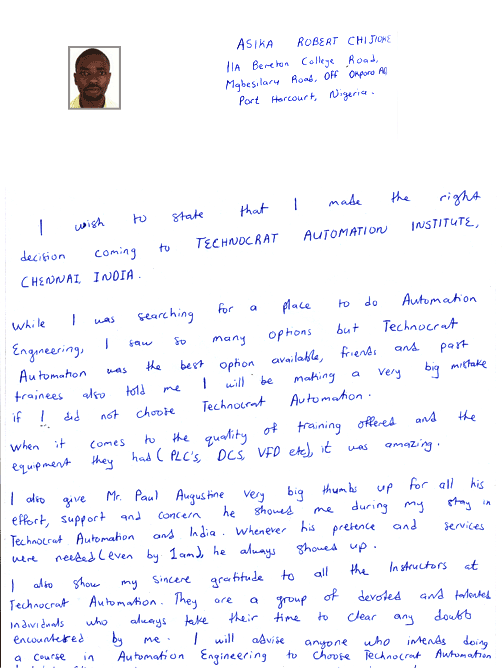 ASIKA ROBERT CHIJIOKE
11A Bereton College Road,
Mgbesilaru Road, Off Okporo Rd
Port Harcourt, Nigeria.
I wish to state that I made the right
decision coming to TECHNOCRAT AUTOMATION INSTITUTE,
CHENNAI, INDIA.
While I was searching for a place to do Automation
Engineering, I saw so many options but Technocrat
Automation was the best option available, friends and past
trainees also told me I will be making a very big mistake
if I did not choose Technocrat Automation.
When it comes to the quality of training offered and the
equipment they had (PLC's, DCS, VFD etc), it was amazing.
I also give Mr. Paul Augustine very big thumbs up for all his
effort, support and concern he showed me during my stay in
Technocrat Automation and India. Whenever his presence and services
were needed (even by 1am), he always showed up.
I also show my sincere gratitude to all the Instructors at
Technocrat Automation. They are a group of devoted and talented
Individuals who always take their time to clear any doubts
encountered by me. I will advise anyone who intends doing
a course in Automation Engineering to choose Technocrat Automation